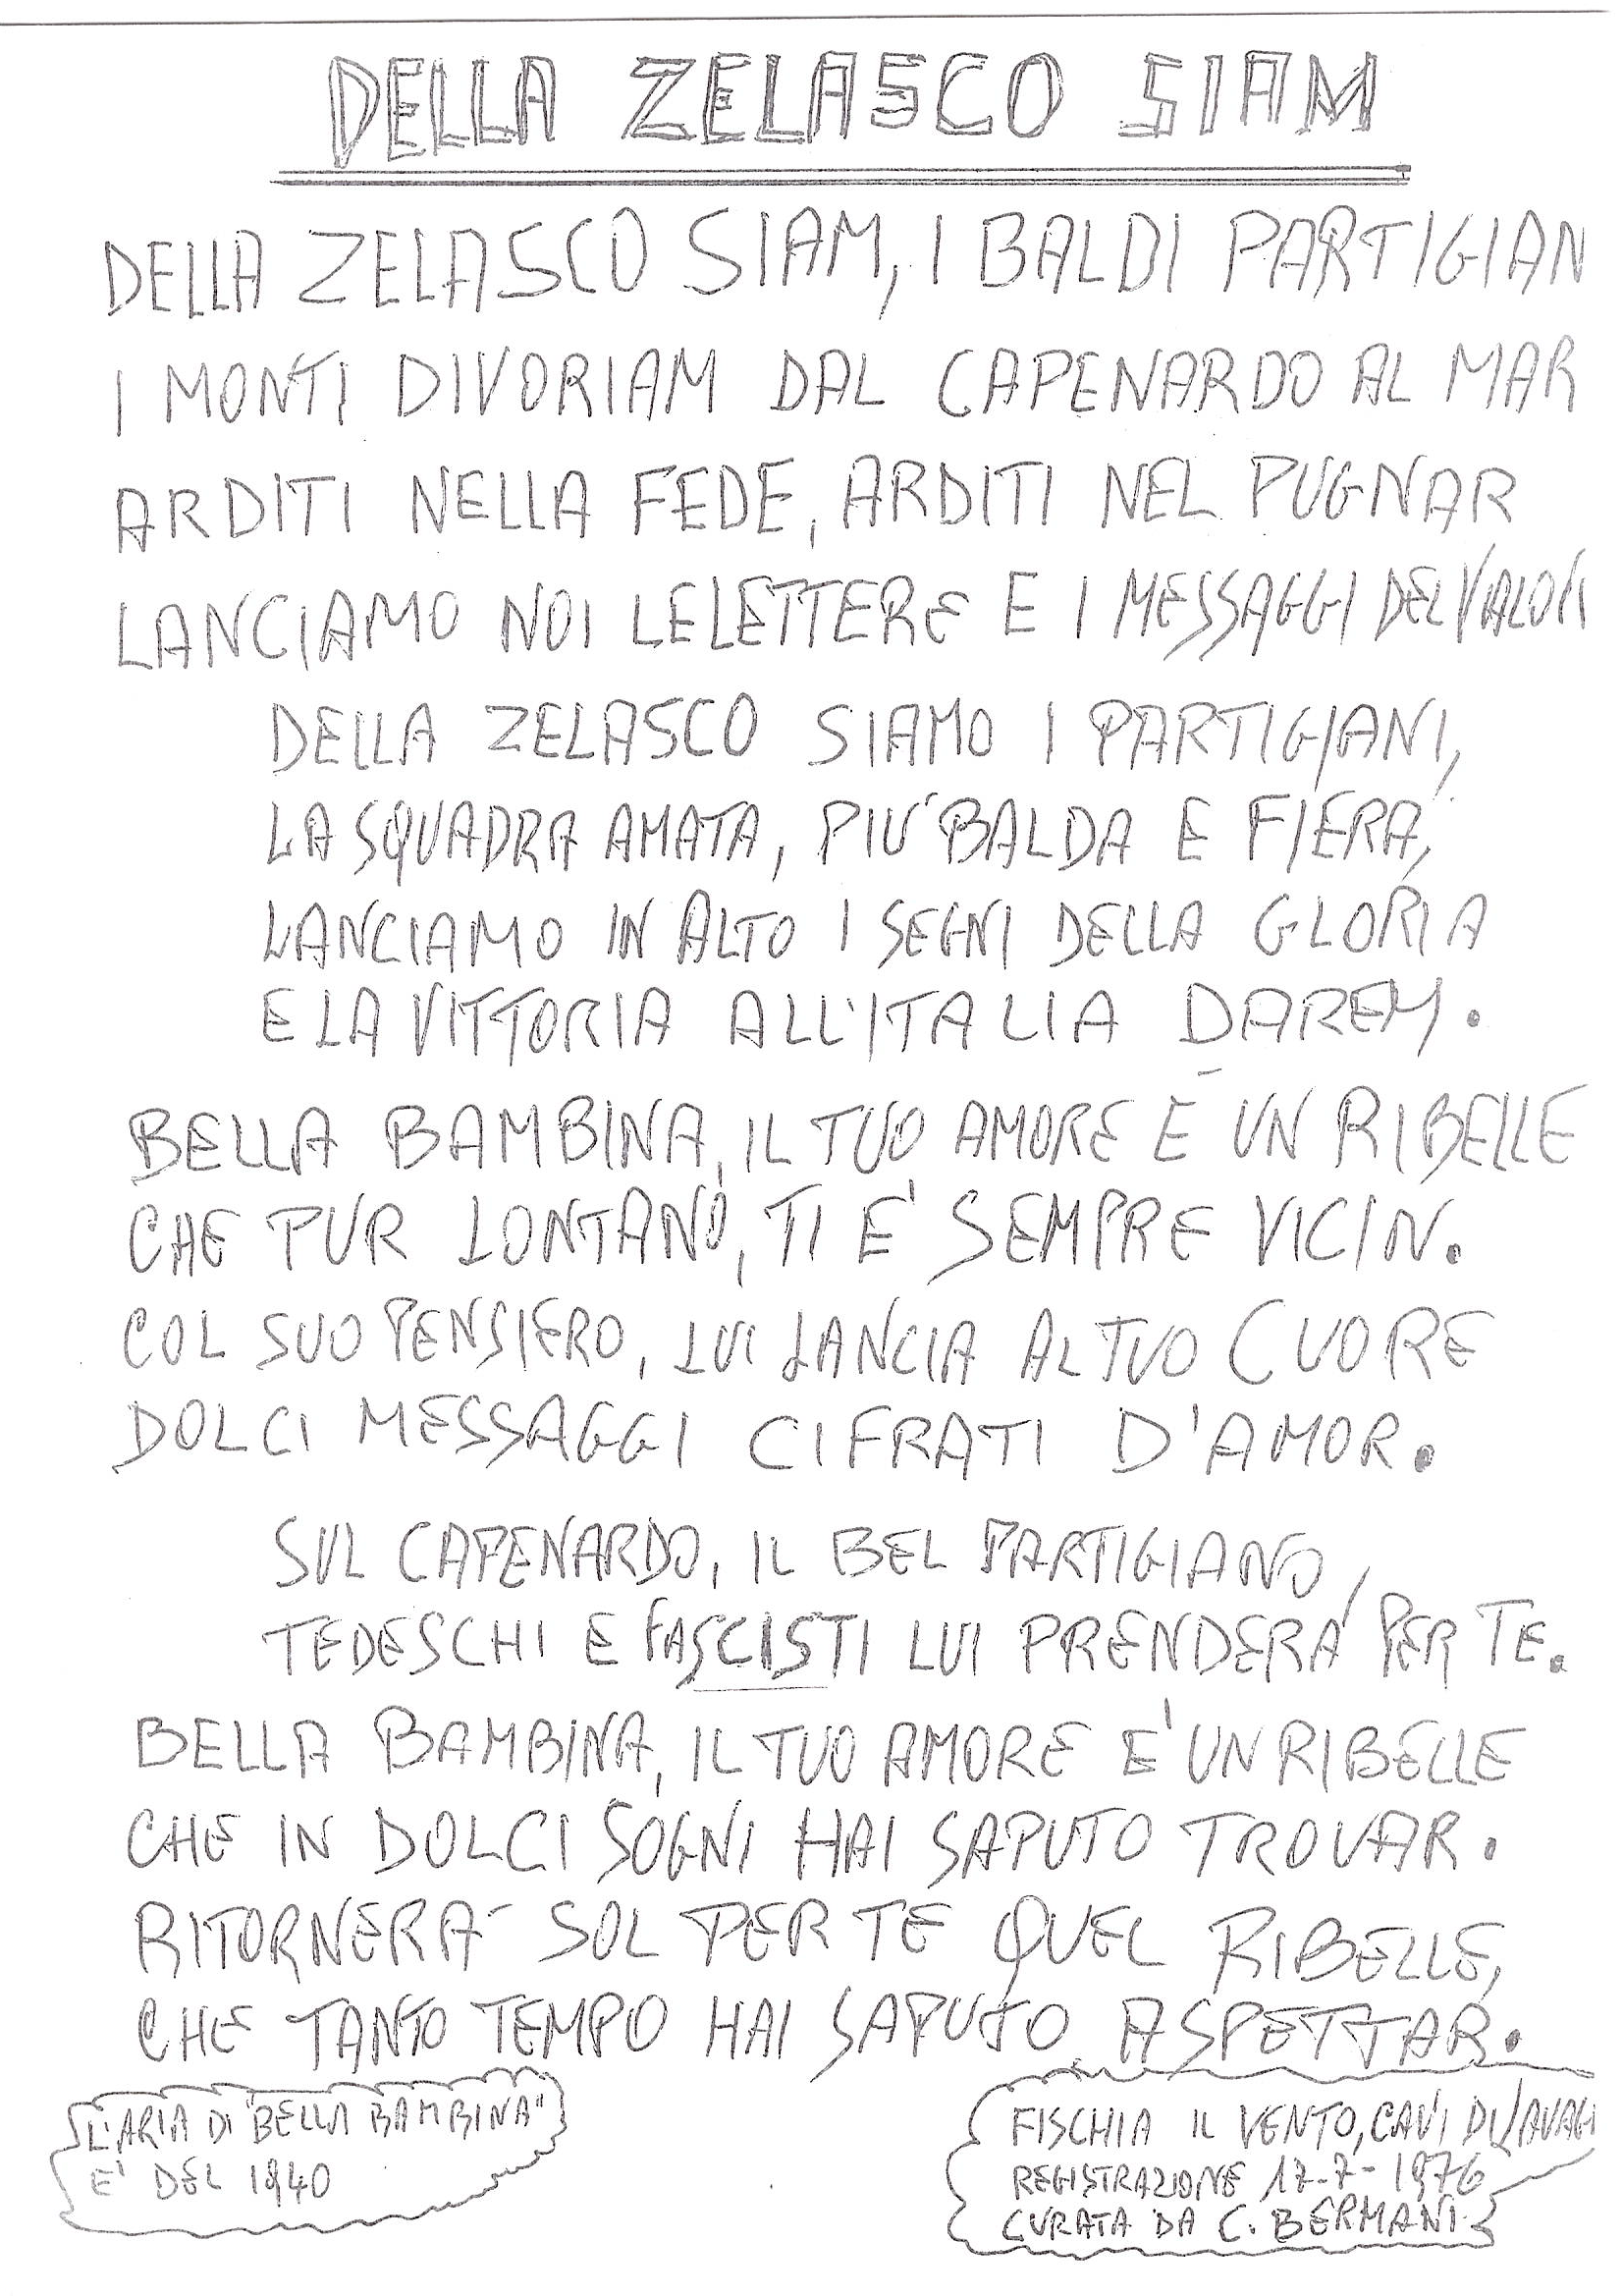 DELLA ZELASCO SIAM
DELLA ZELASCO SIAM, I BALDI PARTIGIAN
I MONTI DIVORIAM DAL CAPENARDO AL MAR
ARDITI NELLA FEDE, ARDITI NEL PUGNAR
LANCIAMO NOI LE LETTERE E I MESSAGGI DEL VALOR
DELLA ZELASCO SIAMO I PARTIGIANI,
LA SQUADRA AMATA, PIU' BALDA E FIERA,
LANCIAMO IN ALTO I SEGNI DELLA GLORIA
E LA VITTORIA ALL'ITALIA DAREM.
BELLA BAMBINA, IL TUO AMORE È UN RIBELLE
CHE PUR LONTANO, TI E' SEMPRE VICIN.
COL SUO PENSIERO, LUI LANCIA AL TUO CUORE
DOLCI MESSAGGI CIFRATI D'AMOR.
SUL CAPENARDO, IL BEL PARTIGIANO,
TEDESCHI E FASCISTI LUI PRENDERA' PER TE.
BELLA BAMBINA, IL TUO AMORE E' UN RIBELLE
CHE IN DOLCI SOGNI HAI SAPUTO TROVAR.
RITORNERA' SOL PER TE QUEL RIBELLE,
CHE TANTO TEMPO HAI SAPUTO ASPETTAR.
L'ARIA DI "BELLA BAMBINA"
E' DEL 1940
FISCHIA IL VENTO, CAVI DI LAVAG
REGISTRAZIONE 17-7-1976
CURATA DA C. BERMANI